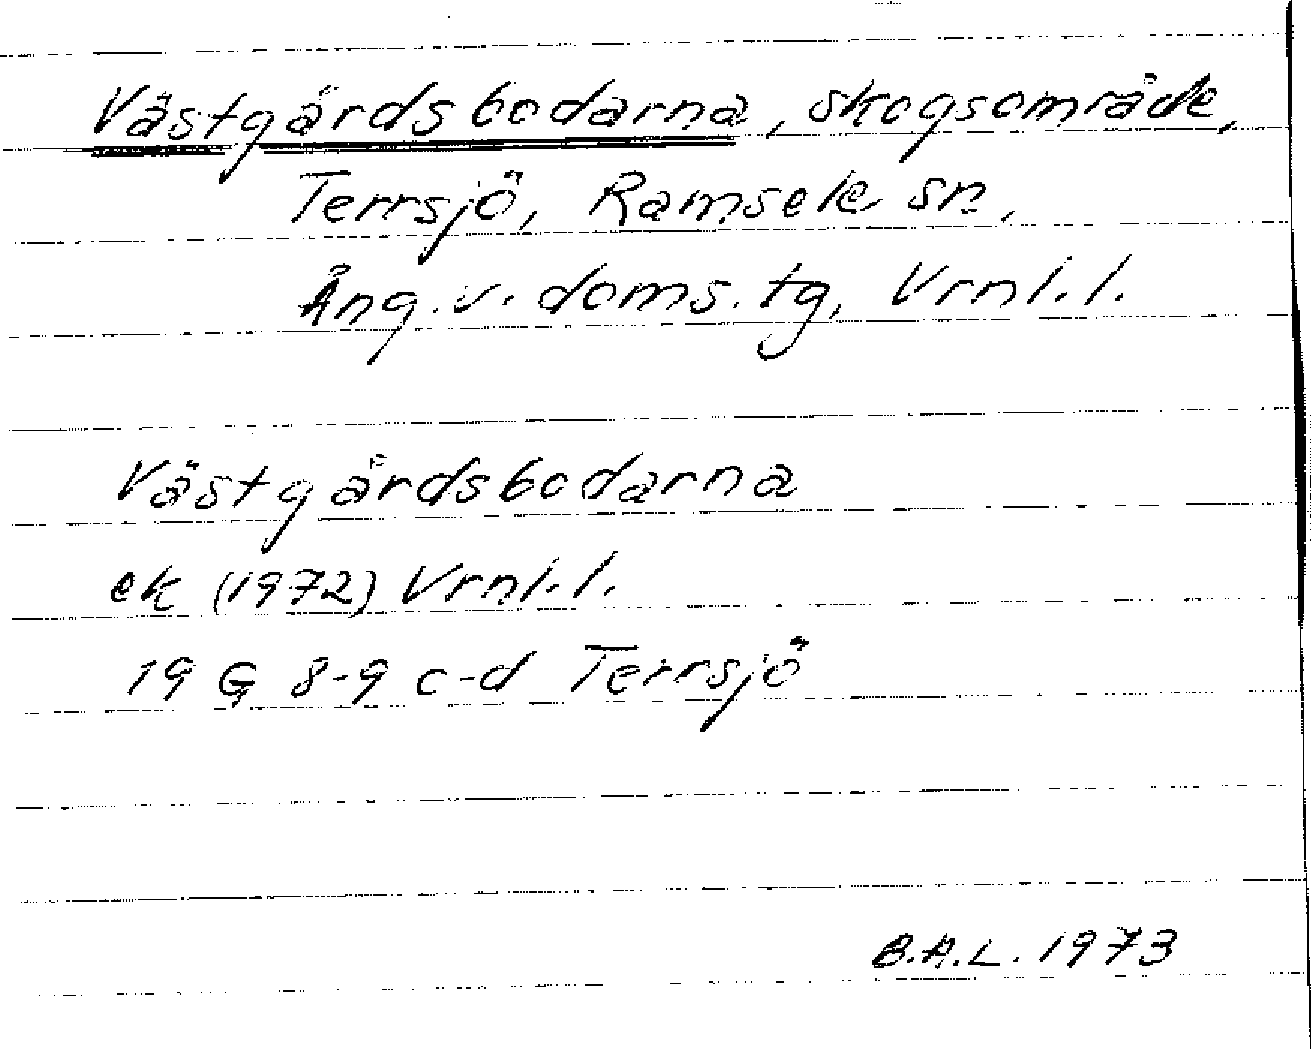 Västgårdsbodarna, skogsområde,
Terrsjö, Ramsele sn,
Ång. v. doms. tg, Vrnl. l.
Västgårdsbodarna
ek (1972) Vrnl. l.
19 G 8-9 c-d Terrsjö
B.A.L. 1973